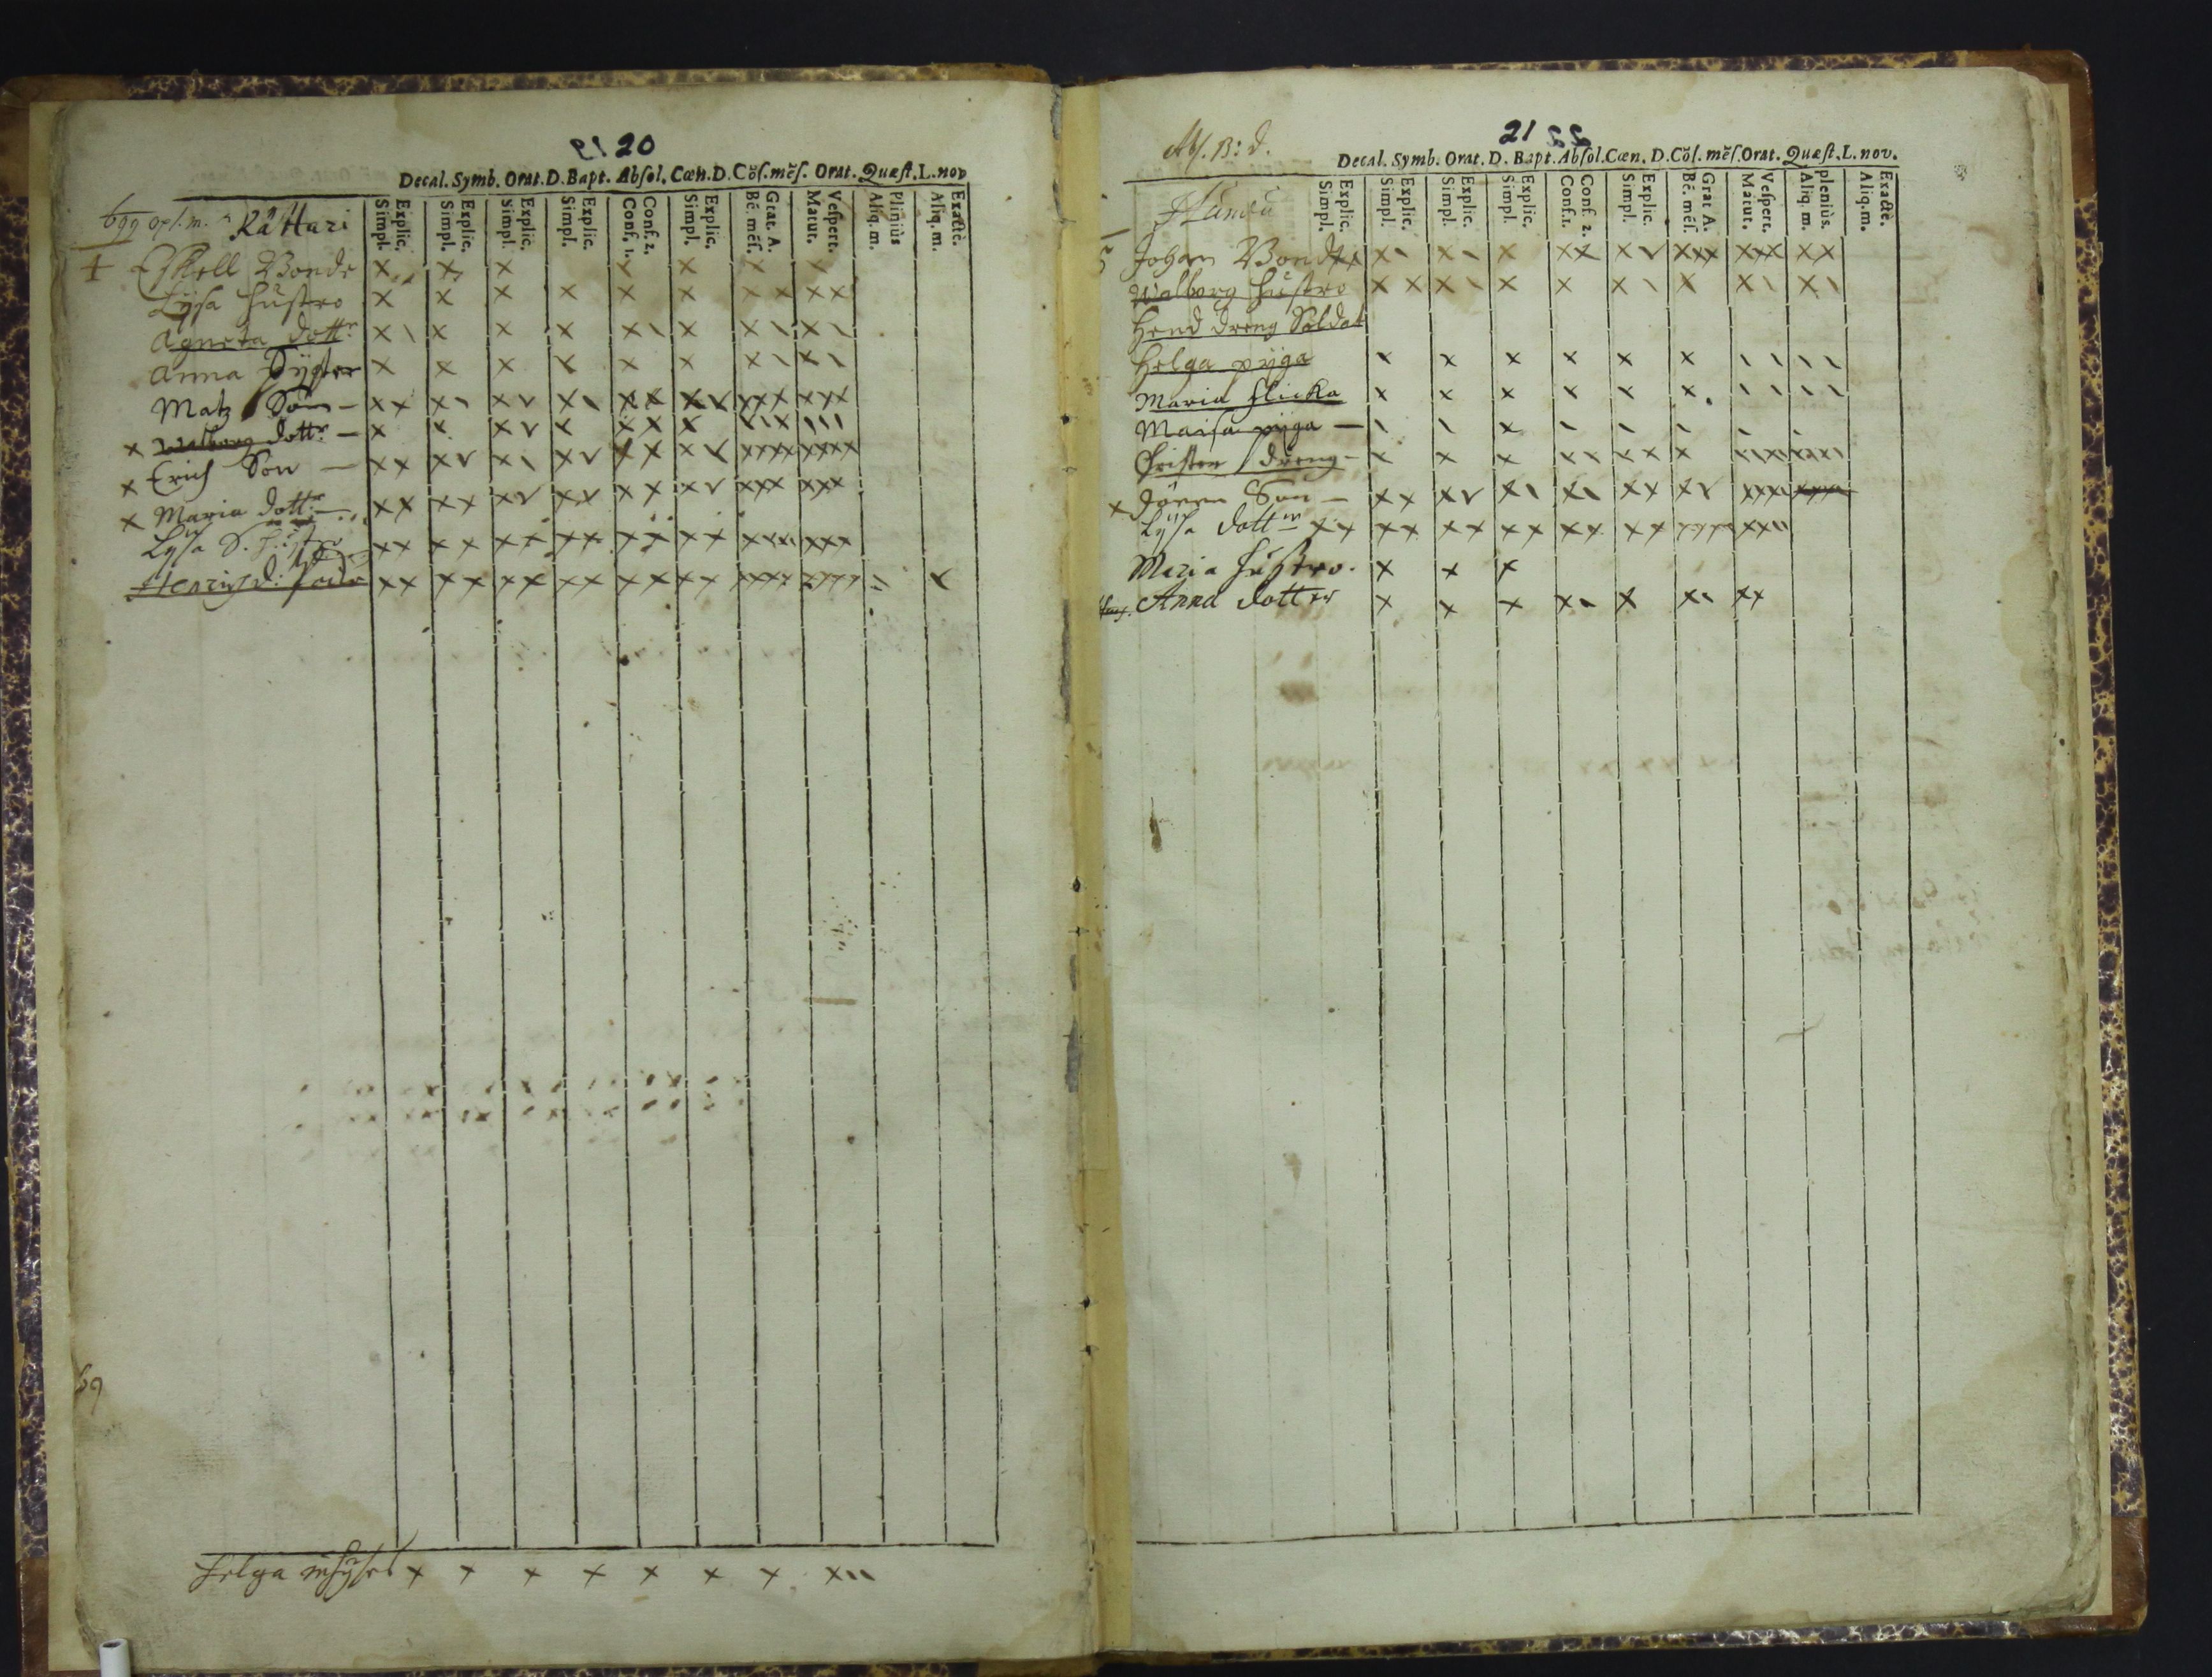 20
Decal. Symb. Orat. D. Bapt. Absol. Cœn. D. Cŏſ. mĕſ. Orat. Quæſt. L. nov
Explic. Simpl. Explic. Simpl. Explic. Simpl. Explic. Simpl. Conf. 2. Conf. 1. Explic. Simpl. Grat. A. Bĕ. mĕſ. Veſpert. Matut. Pliniùs Aliq. m. Exactè. Aliq. m.
Råttari
Eskell Bonde
Lÿsa hustro
Agneta dottr
Anna Sÿster
Matz Son
Walborg dottr
Erich Son
Maria dottr
Lÿsa S. hustro
Helga
21 22
Decal. Symb. Orat. D. Bapt. Abſol. Cœn. D. Cŏſ. mĕſ. Orat. Quæſt. L. nov.
Explic. Simpl. Explic. Simpl. Explic. Simpl. Explic. Simpl. Conf. 2. Conf. 1. Explic. Simpl. Grat A. Bĕ. mĕſ. Veſpert. Matut. pleniùs. Aliq. m. Exactè. Aliq. m.
Johan Bonde
Walborg hustro
Hend dreng Soldat
Helga pÿga
Maria flicka
Maisa pÿga
Christer dreng
Jören Son
Lÿsa dotter
Maria hustro.
Anna dotter